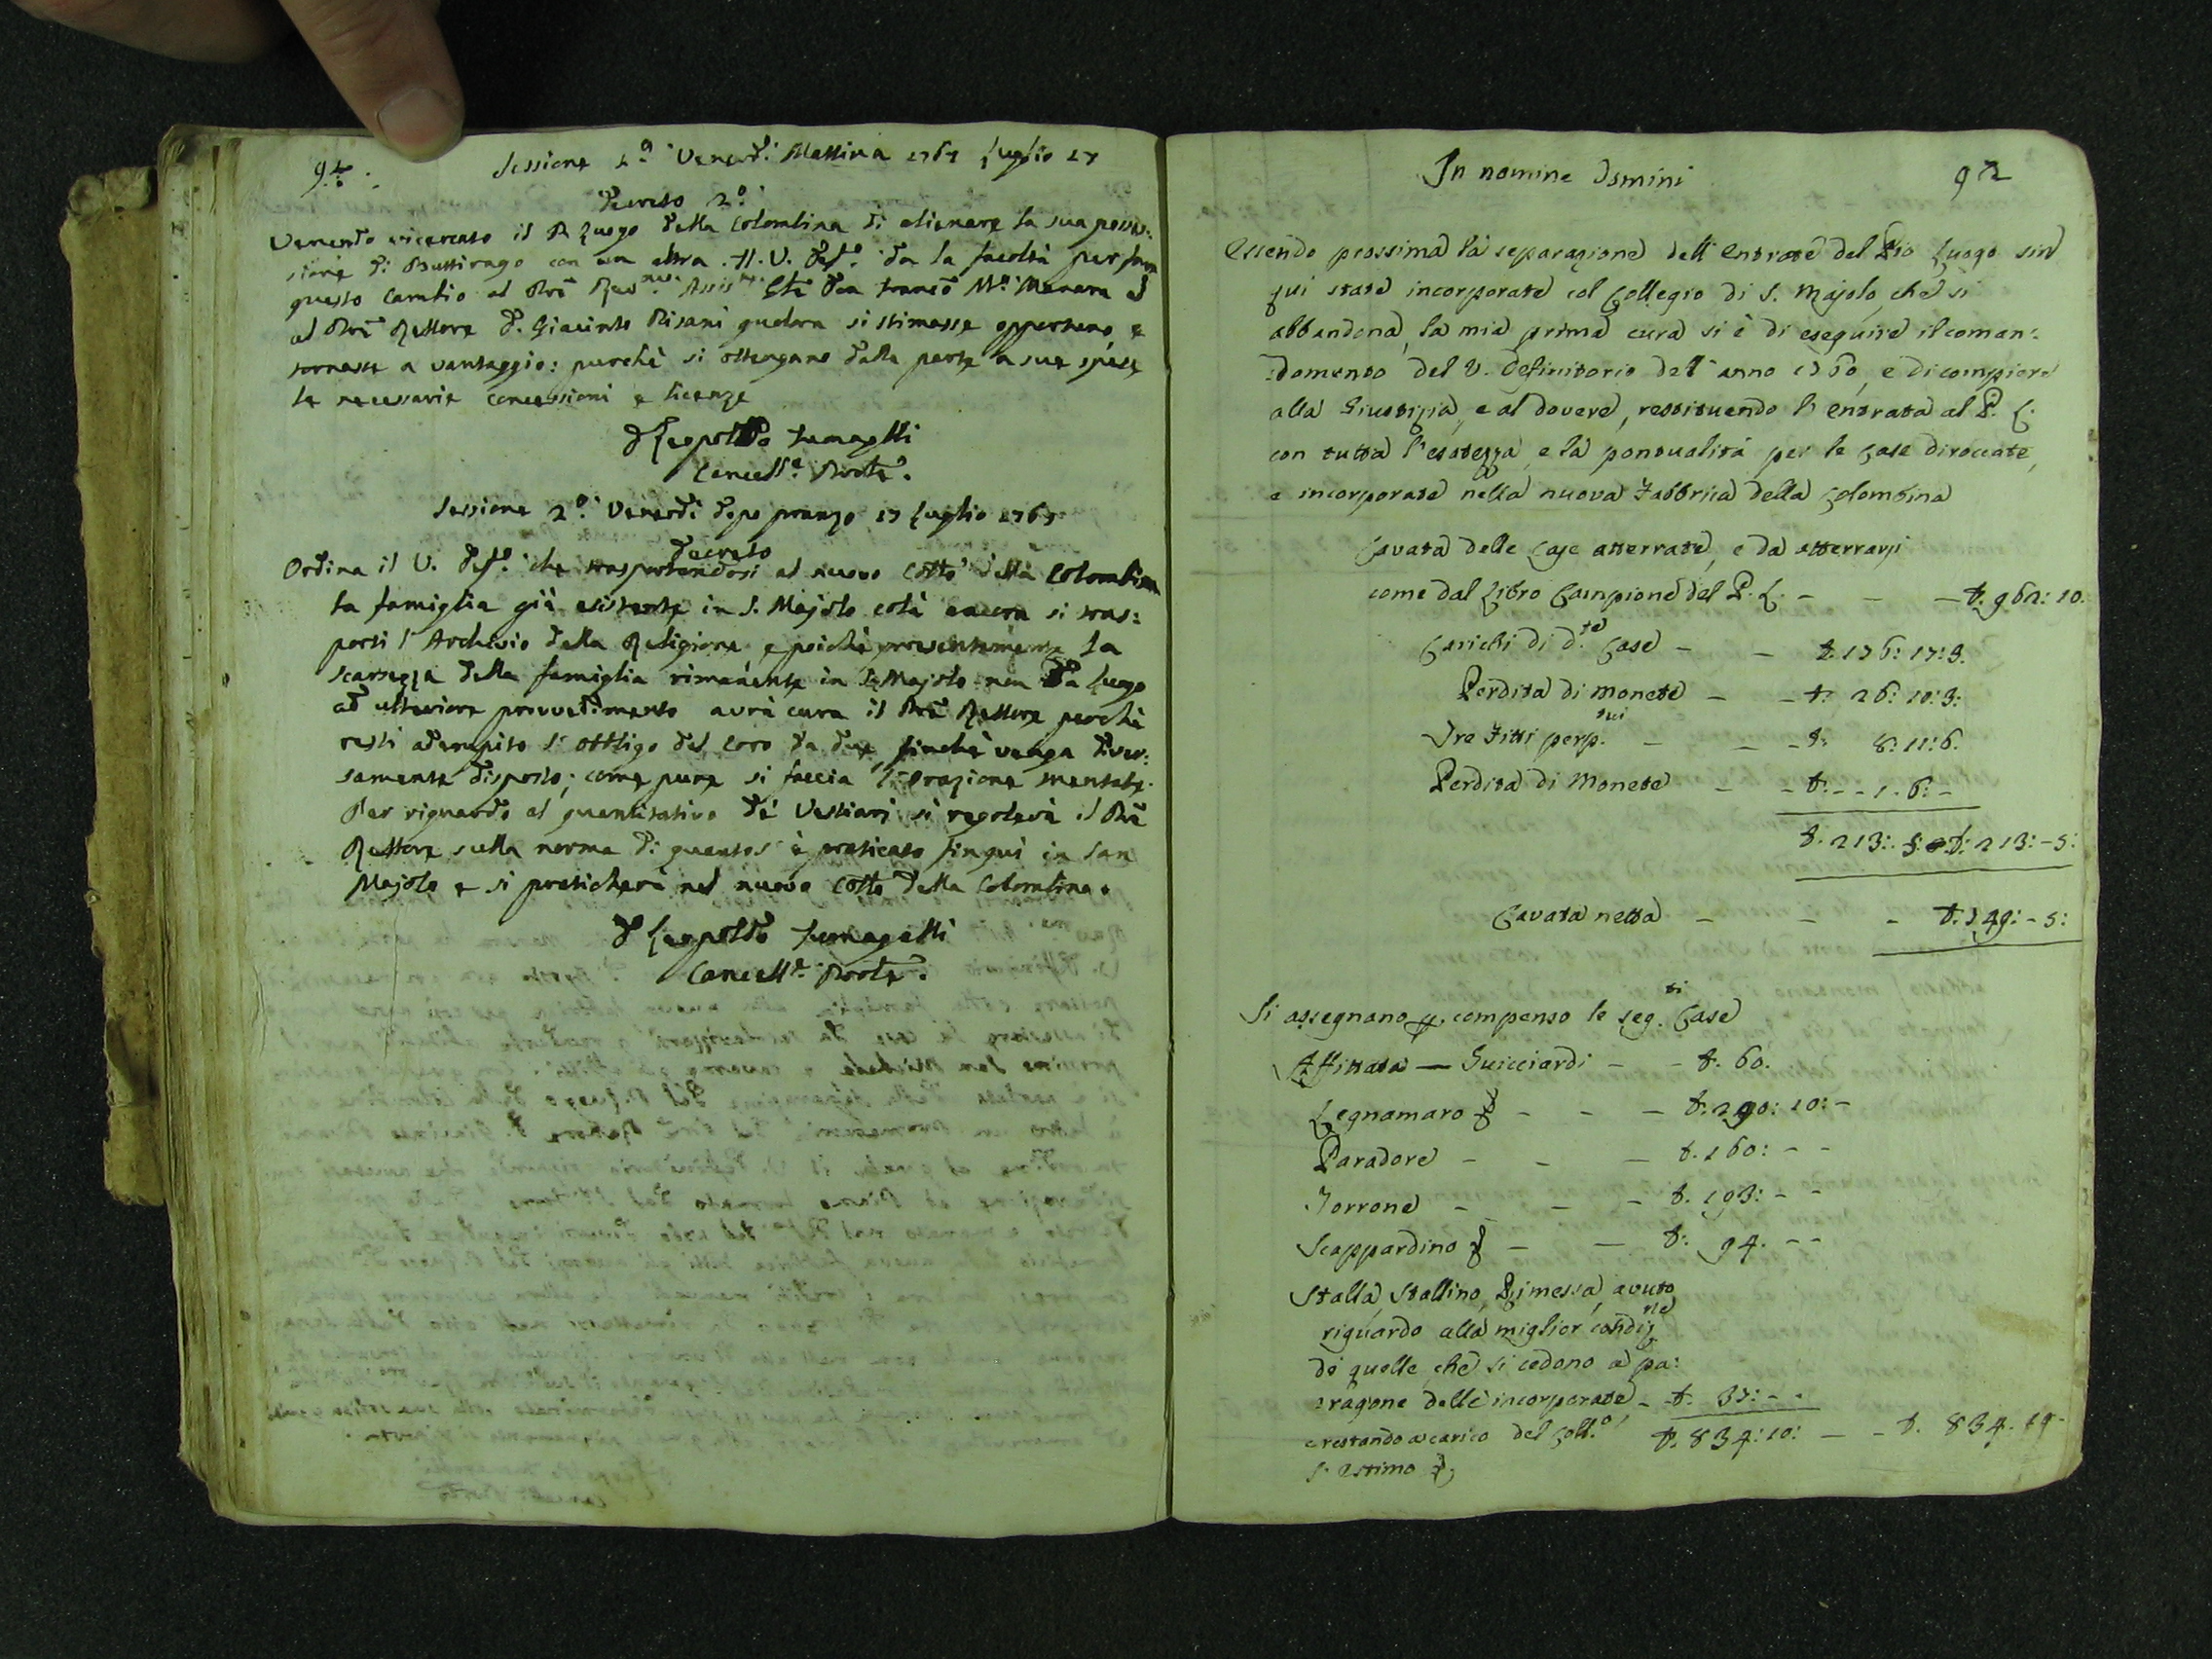 Sessione 1.ª Venerdì Mattina 1767 Luglio 17
Decreto 2.º
Venendo ricercato il P. Luogo della Colombina di alienare la sua posses:
sione di Buttirago con un altra. Il V. Def.º da la facoltà per fare
questo cambio al Prē Rev.mo Assis.te Gñle Don Franco M.ª Manara ed
al Prē Rettore D. Giacinto Pisani qualora si stimasse opportuno, e
tornasse a vantaggio: purchè si ottengano dalla parte a sue spese
le necessarie concessioni e licenze
D Leopoldo Fumagalli
Cancell.e Prole.
Sessione 2.ª Venerdì dopo pranzo 17 Luglio 1767
Decreto
Ordina il V. Def.º che trasportandosi al nuovo Collº della Colombina
la famiglia già esistente in S. Majolo colà ancora si tras:
porti l'Archivio della Religione, e poichè presentemente la
scarsezza della famiglia rimanente in S. Majolo non dà luogo
ad ulteriore provvedimento avrà cura il Prē Rettore perchè
resti adempito l'obbligo del Coro da due, finchè venga diver:
samente disposto; come pure si faccia l'orazione mentale.
Per riguardo al quantitativo de' Vestiarj si regolerà il Prē
Rettore sulla norma di quanto s'è praticato finquì in San
Majolo e si praticherà nel nuovo Collº della Colombina.
D Leopoldo Fumagalli
Cancell.e Prole.
In nomine Domini 92
Essendo prossima la separazione dell'entrate del Pio Luogo sin
qui state incorporate col Collegio di S. Majolo, che si
abbandona, la mia prima cura si è di eseguire il coman:
:damento del V. Definitorio dell'anno 1760, e di compiere
alla Giustizia, e al dovere, restituendo l'entrata al P. L.
con tutta l'esatezza, e la pontualità per le Case diroccate,
e incorporate nella nuova Fabbrica della Colombina
Cavata delle Case atterrate, e da atterrarsi
come dal Libro Campione del P. L. - - - £. 962: 10.
Carichi di d.te Case - - £. 176: 17: 9.
Perdita di monete - - £. 26: 10: 3:
Tre Fitti perp.tui - - - £. 8: 11: 6.
Perdita di Monete - - £: - - 1. 6: -
£. 213: 5: £: 213: - 5:
Cavata netta - - - £. 749: - 5:
Si assegnano p. compenso le seg.ti Case
Affittata — Guicciardi - - £. 60.
Legnamaro - - - £. 290: 10: -
Paradore - - - £. 160: - -
Torrone - - - £. 193: - -
Scappardino - - £: 94. - -
Stalla, Stallino, Rimessa, avuto
riguardo alla miglior condiz.ne
di quelle, che si cedono a pa:
:ragone delle incorporate - £. 37: - -
e restando a carico del Coll.º £. 834: 10: - - £. 834. 10 -
l'estimo